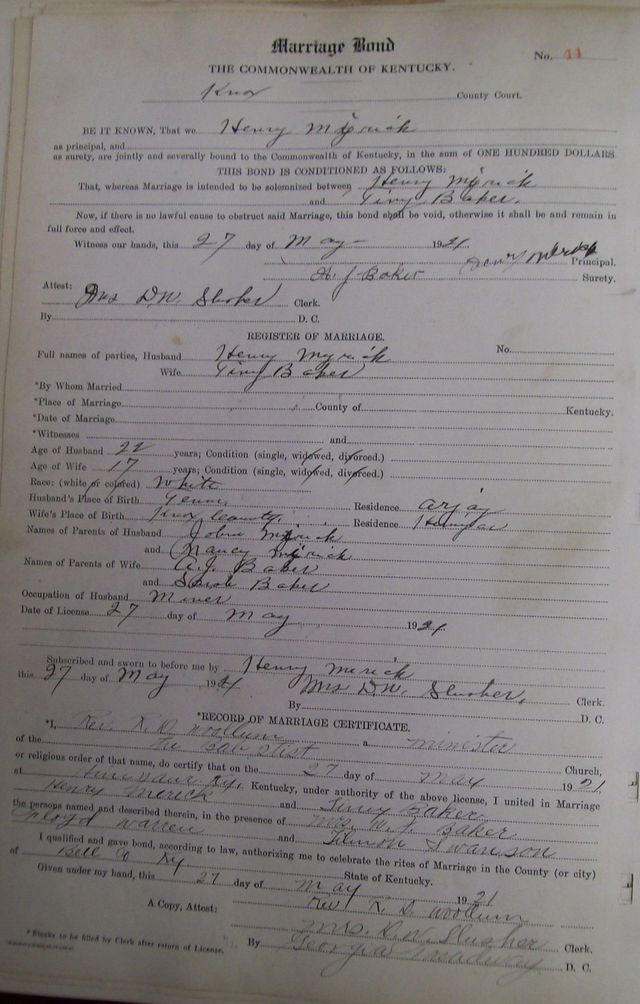 Marriage Bond
No. 44
THE COMMONWEALTH OF KENTUCKY.
Knox County Court.
BE IT KNOWN, That we Henry Myrick
as principal, and
as surety, are jointly and severally bound to the Commonwealth of Kentucky, in the sum of ONE HUNDRED DOLLARS
THIS BOND IS CONDITIONED AS FOLLOWS:
That, whereas Marriage is intended to be solemnized between Henry Myrick
and Tiny Baker.
Now, if there is no lawful cause to obstruct said Marriage, this bond shall be void, otherwise it shall be and remain in
full force and effect.
Witness our hands, this 27 day of May 1921
Henry Merick Principal.
A J Baker Surety.
Attest: Mrs D.W. Slusher Clerk.
By D. C.
REGISTER OF MARRIAGE.
Full names of parties, Husband Henry Myrick No.
Wife Tiny Baker
*By Whom Married
*Place of Marriage County of Kentucky.
*Date of Marriage
*Witnesses and
Age of Husband 22 years; Condition (single, widowed, divorced.)
Age of Wife 17 years; Condition (single, widowed, divorced.)
Race: (white or colored) White
Husband's Place of Birth Tenn Residence Arjay
Wife's Place of Birth Knox County. Residence
Names of Parents of Husband John Myrick
and Nancy Myrick
Names of Parents of Wife A.J. Baker
and Sarah Baker
Occupation of Husband Miner
Date of License 27 day of May 1921.
Subscribed and sworn to before me by Henry Merick
this 27 day of May 1921 Mrs D.W. Slusher, Clerk.
By D. C.
*RECORD OF MARRIAGE CERTIFICATE.
*I, Rev. L. D. Woollum a minister
of the Baptist Church,
or religious order of that name, do certify that on the 27 day of May 1921
at Ky, Kentucky, under authority of the above license, I united in Marriage
Henry Merick and Tiny Baker
the persons named and described therein, in the presence of Mrs. W. J. Baker
Floyd Warren and Swanson
I qualified and gave bond, according to law, authorizing me to celebrate the rites of Marriage in the County (or city)
of Bell Co Ky State of Kentucky.
Given under my hand, this 27 day of May 1921
Rev L. D. Woollum
A Copy, Attest: Mrs. D.W. Slusher Clerk.
* Blanks to be filled by Clerk after return of License. By Georgia Meadway D. C.